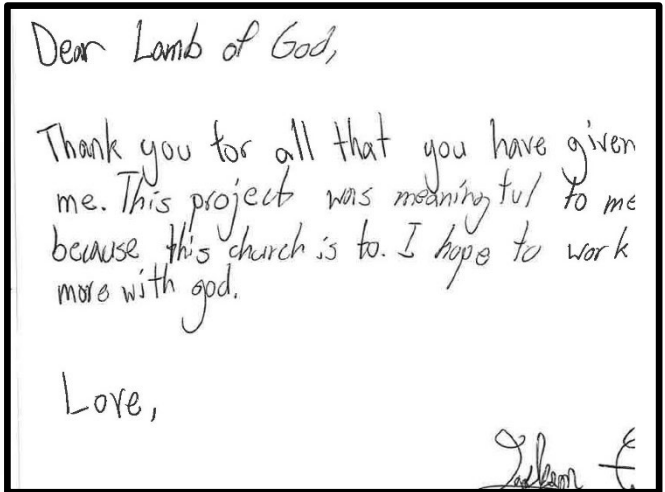 Dear Lamb of God,
Thank you for all that you have given
me. This project was meaningful to me
because this church is to. I hope to work
more with god.
Love,